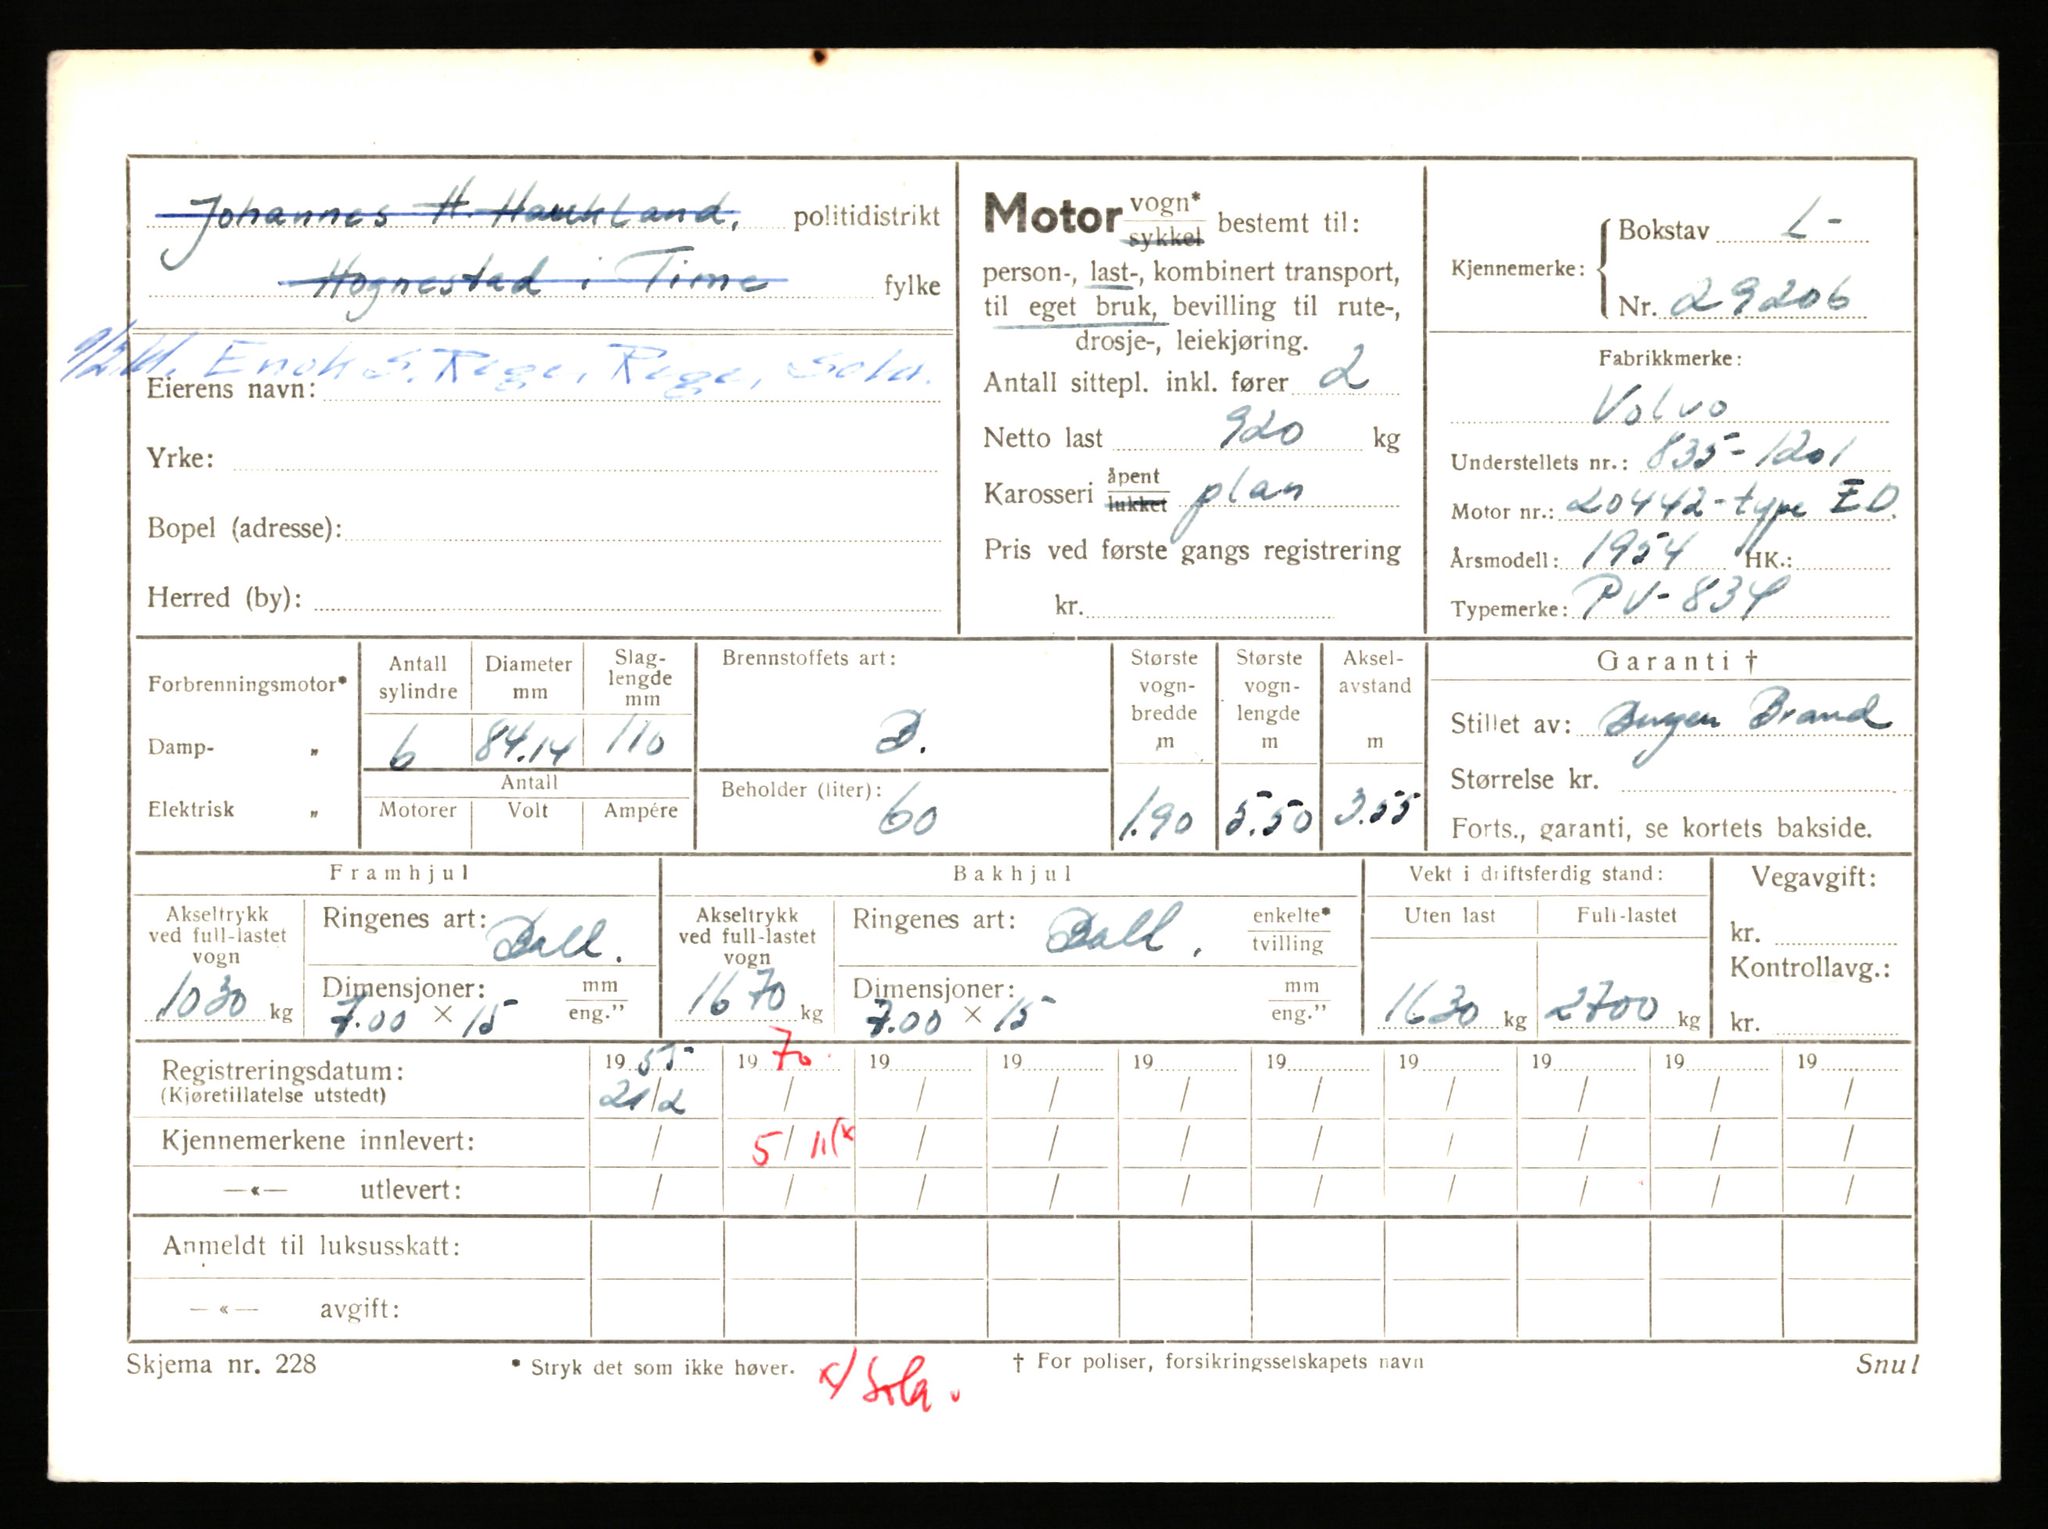 Johannes H. Haukland. politidistrikt
Hognestad i Time fylke
Enok S. Rege, Rege, Sola.
Eierens navn:
Yrke:
Bopel (adresse):
Herred (by):
Motor vogn* sykkel bestemt til:
person-, last-, kombinert transport,
til eget bruk, bevilling til rute-,
drosje-, leiekjøring.
Antall sittepl. inkl. fører 2
Netto last 920 kg
Karosseri åpent lukket plan
Pris ved første gangs registrering
kr.
Kjennemerke: Bokstav L-
Nr. 29206
Fabrikkmerke:
Volvo
Understellets nr.: 835-1201
Motor nr.: 20442-type ED.
Årsmodell: 1954 HK.:
Typemerke: PV-834
Forbrenningsmotor*
Damp- "
Elektrisk "
Antall sylindre
Diameter mm
Slag-lengde mm
6 84.14 110
Antall
Motorer Volt Ampére
Brennstoffets art:
B.
Beholder (liter):
60
Største vogn-bredde m
1.90
Største vogn-lengde m
5.50
Aksel-avstand m
3.55
Garanti †
Stillet av: Brand
Størrelse kr.
Forts., garanti, se kortets bakside.
Framhjul
Akseltrykk ved full-lastet vogn
1030 kg
Ringenes art: Ball.
Dimensjoner: mm eng."
7.00 × 15
Bakhjul
Akseltrykk ved full-lastet vogn
1670 kg
Ringenes art: Ball. enkelte* tvilling
Dimensjoner: mm eng."
7.00 × 15
Vekt i driftsferdig stand:
Uten last Full-lastet
1630 kg 2700 kg
Vegavgift:
kr.
Kontrollavg.:
kr.
Registreringsdatum: 1955 1970 19 19 19 19 19 19 19 19
(Kjøretillatelse utstedt) 21/2 / / / / / / / / /
Kjennemerkene innlevert: / 5/11(x / / / / / / / /
—«— utlevert: / / / / / / / / / /
Anmeldt til luksusskatt:
—«— avgift:
Skjema nr. 228 * Stryk det som ikke høver. x/ Sola. † For poliser, forsikringsselskapets navn Snul